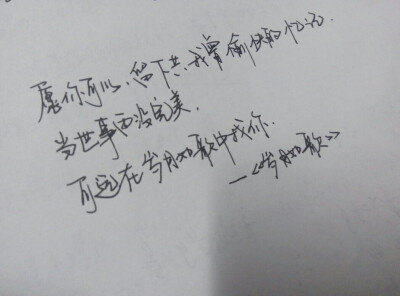 愿你可以,留下共我曾愉快的忆记,
当世事再没完美,
可远在岁月如歌中找你.
—《岁月如歌》